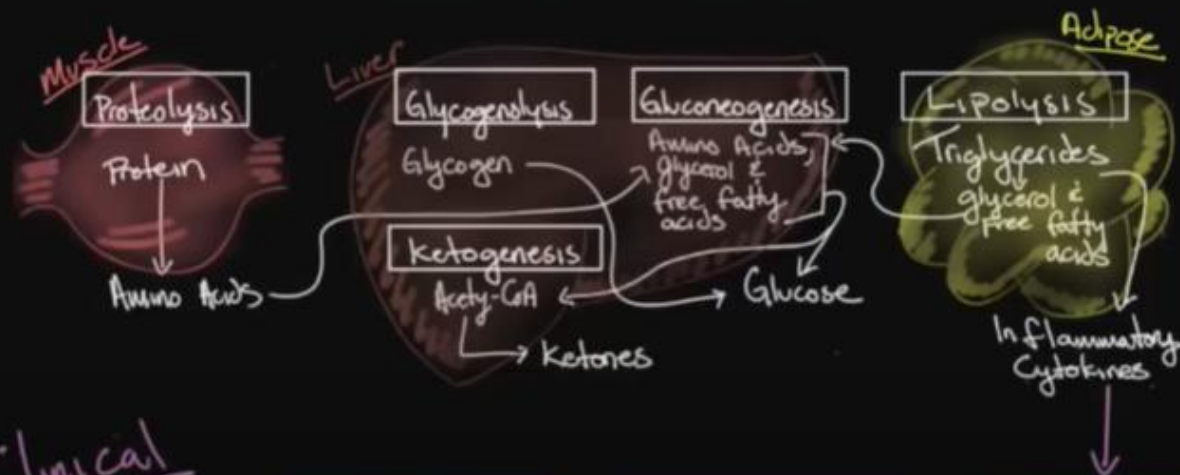 Muscle
Proteolysis
Protein
Amino Acids
Liver
Glycogenolysis
Glycogen
Ketogenesis
Acety-CoA
Ketones
Gluconeogenesis
Amino Acids,
glycerol &
free fatty
acids
Glucose
Adipose
Lipolysis
Triglycerides
glycerol &
free fatty
acids
Inflammatory
Cytokines
Clinical